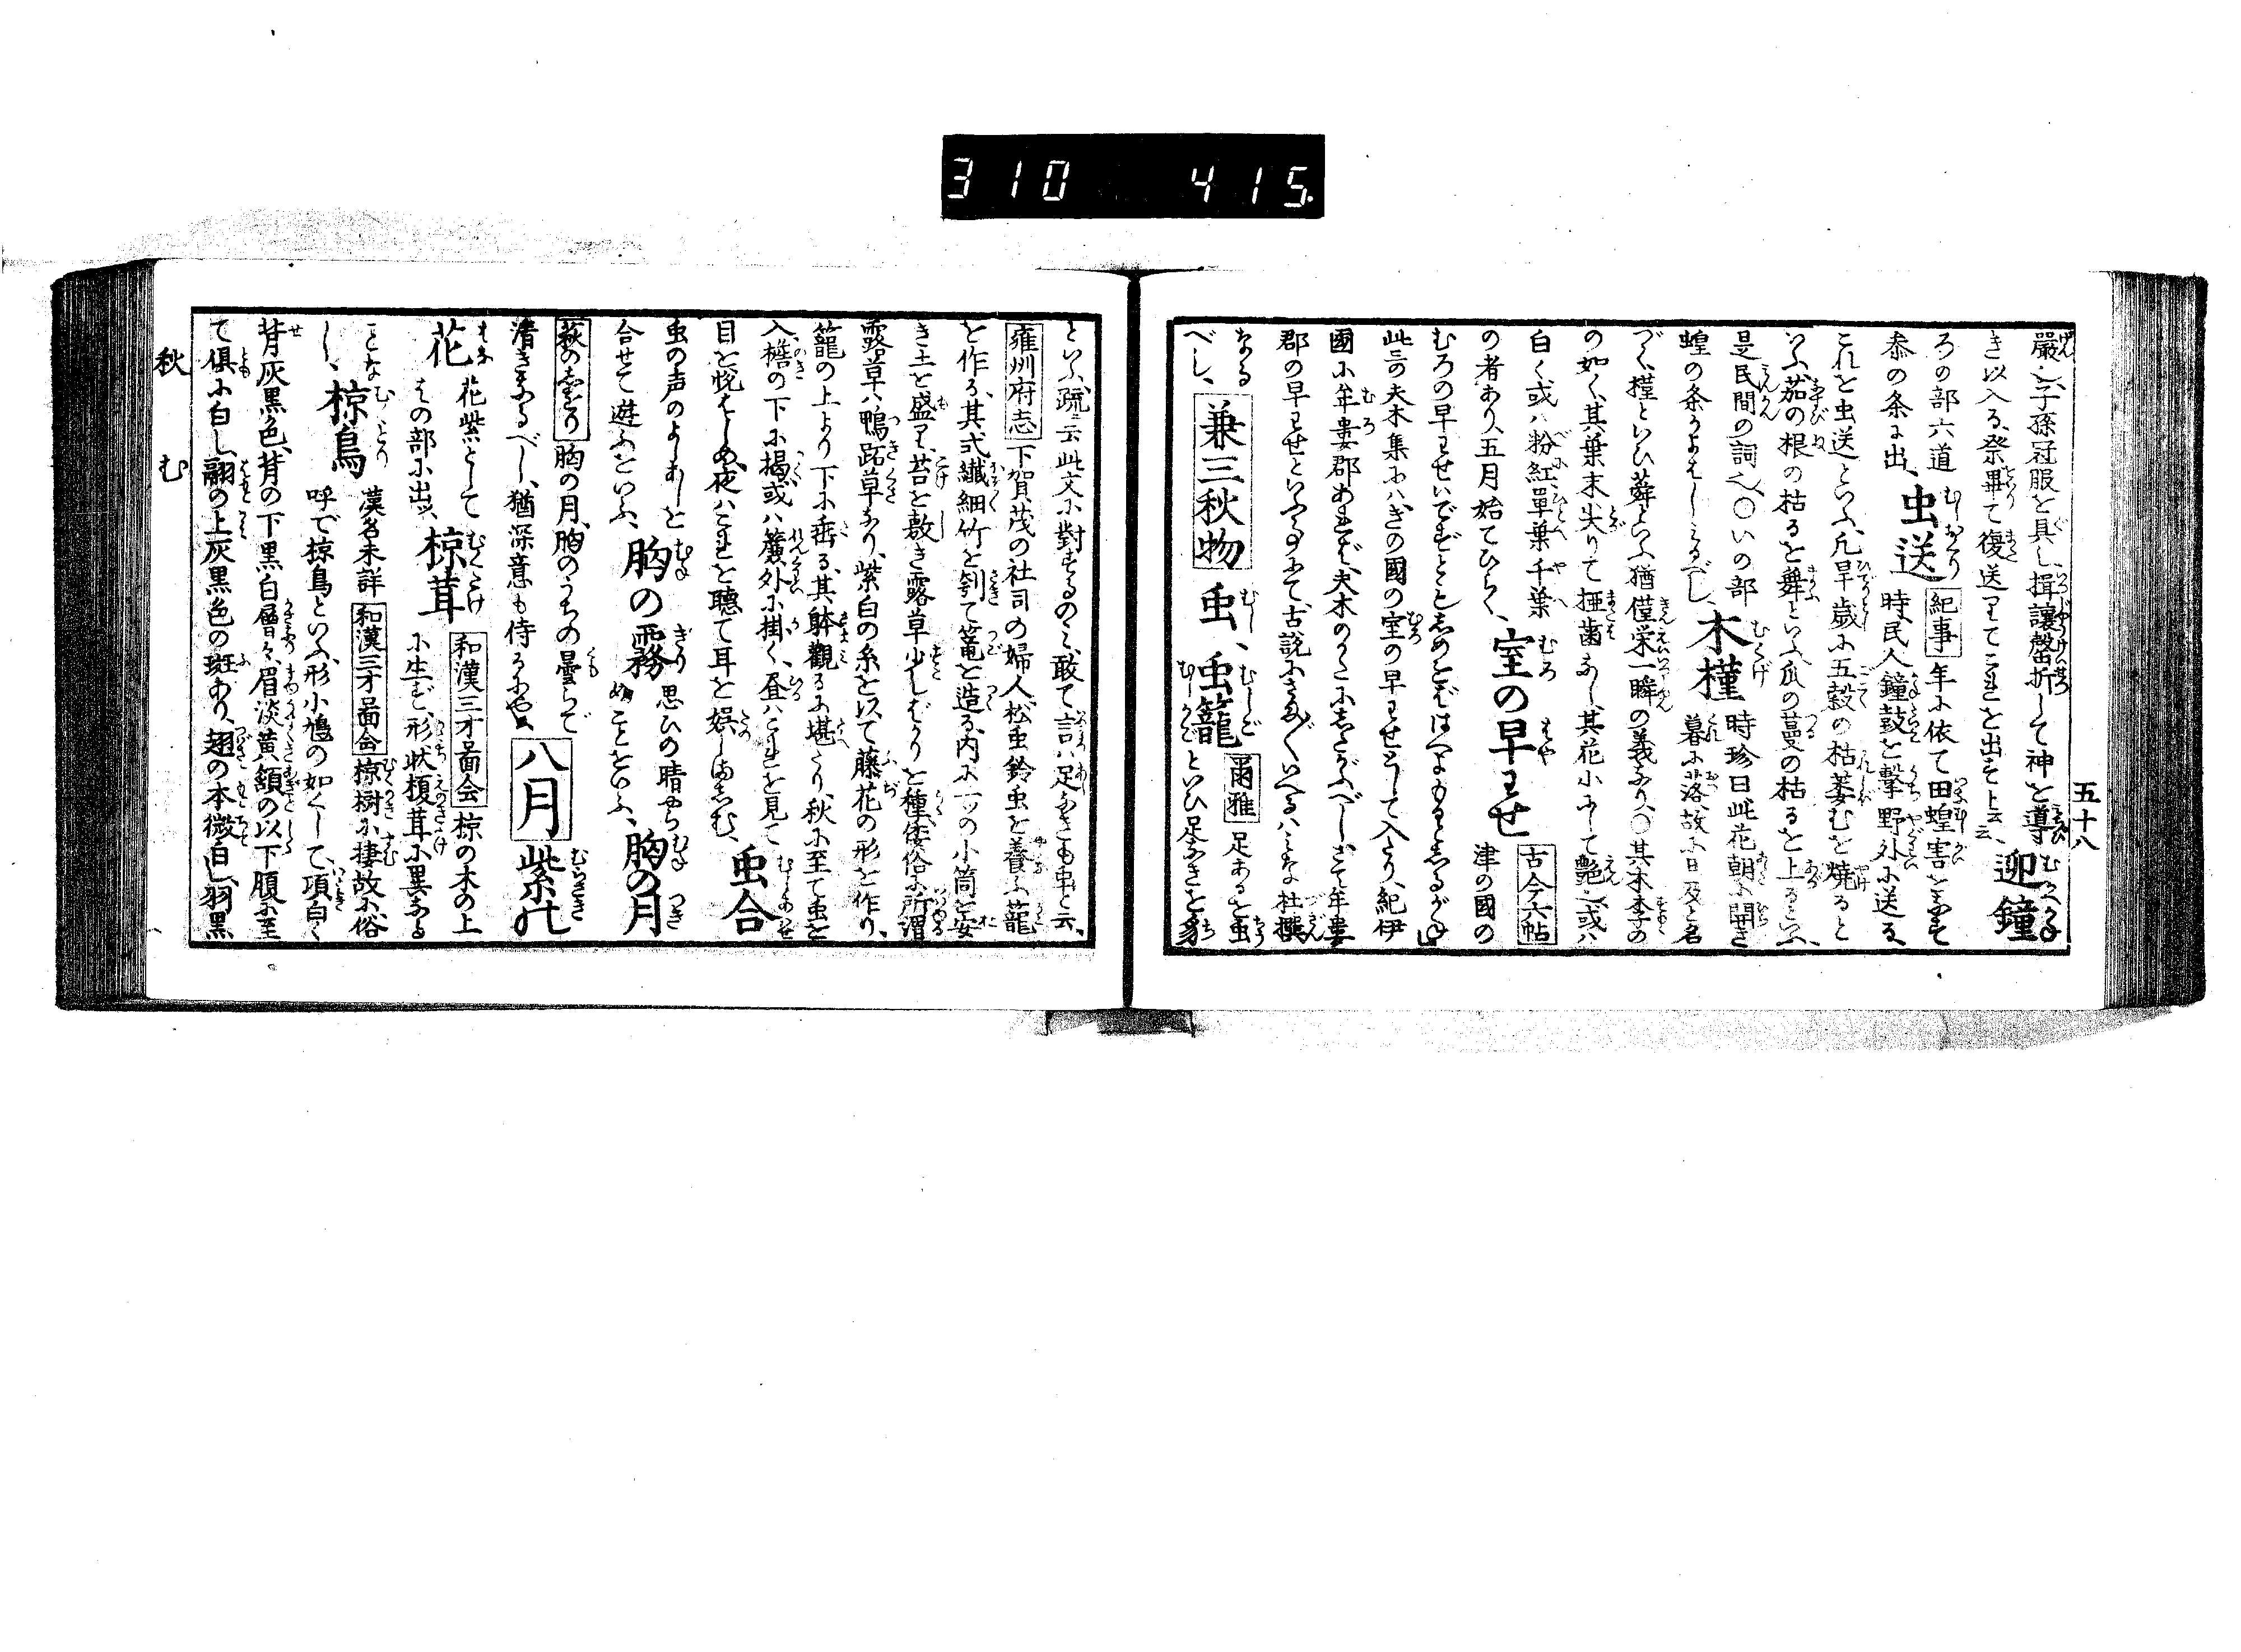 310 415
五十八
嚴し子孫冠服を具し揖讓磬折して神を導
き以入る、祭畢て復送りてこれを出す上云云、迎鐘
ろの部六道
参の条に出、虫送 紀事 年に依て田蝗害をなす
時民人鐘鼓を撃野外に送る、
これを虫送といふ、凡旱歳に五穀の枯萎むを焼ると
いふ、茄の根の枯るを舞といふ、瓜の蔓の枯るを上るといふ、
是民間の詞也〇いの部
蝗の条によせしるべし、木槿 時珍曰此花朝に開き
暮に落故に日及と名
づく、槿といひ蕣といふ猶僅栄一瞬の義なり、〇其木李の
如く、其葉末尖りて椏歯なし其花小にして艶也或ハ
白く或ハ粉紅單葉千葉
の者あり、五月始てひらく、室の早わせ 古今六帖
津の國の
むろの早わせいでずとも
此哥夫木集にハ、きの國の室の早わせとして入たり、紀伊
國に牟婁郡あれば、夫木のかたにしたがふべしさて牟婁
郡の早わせといふ事にて、古説にさまざまいへるハみな杜撰
なる
べし、兼三秋物 虫、虫籠 爾雅 足あるを虫
といひ足なきを豸
といふ、疏云此文に對するのミ、敢て言ハ足なきも虫と云、
雍州府志 下賀茂の社司の婦人、松虫鈴虫を養ふ籠
を作る、其式纖細竹を刳て篭を造る、内に一ツの小筒を安
き土を盛り、苔を敷き露草少しばかりを種、倭俗に所謂
露草ハ鴨跖草なり、紫白の糸を以て藤花の形を作り、
籠の上より下に垂る、其躰觀るに堪たり、秋に至て虫を
入、檐の下に掲、或ハ簾外に掛く、昼ハこれを見て
目を悦ばしめ、夜ハこれを聴て耳を娯しましむ、虫合
虫の声のよしあしを
合せて遊ぶをいふ、胸の霧 思ひの晴やら
ぬことをいふ、胸の月
萩のしをり 胸の月、胸のうちの曇らで
清きなるべし、猶深意も侍るにや 八月 紫の
花 花紫として
はの部に出、椋茸 和漢三才啚会 椋の木の上
に生ず、形状榎茸に異なる
ことな
し、椋鳥 漢名未詳 和漢三才啚会 椋樹に棲故に俗
呼で椋鳥といふ、形小鳩の如くして、項白く
背灰黒色、背の下黒白層々、眉淡黄頷の以下腹に至
て俱に白し、翮の上灰黒色の斑あり、翅の本微白し、羽黒
秋 む